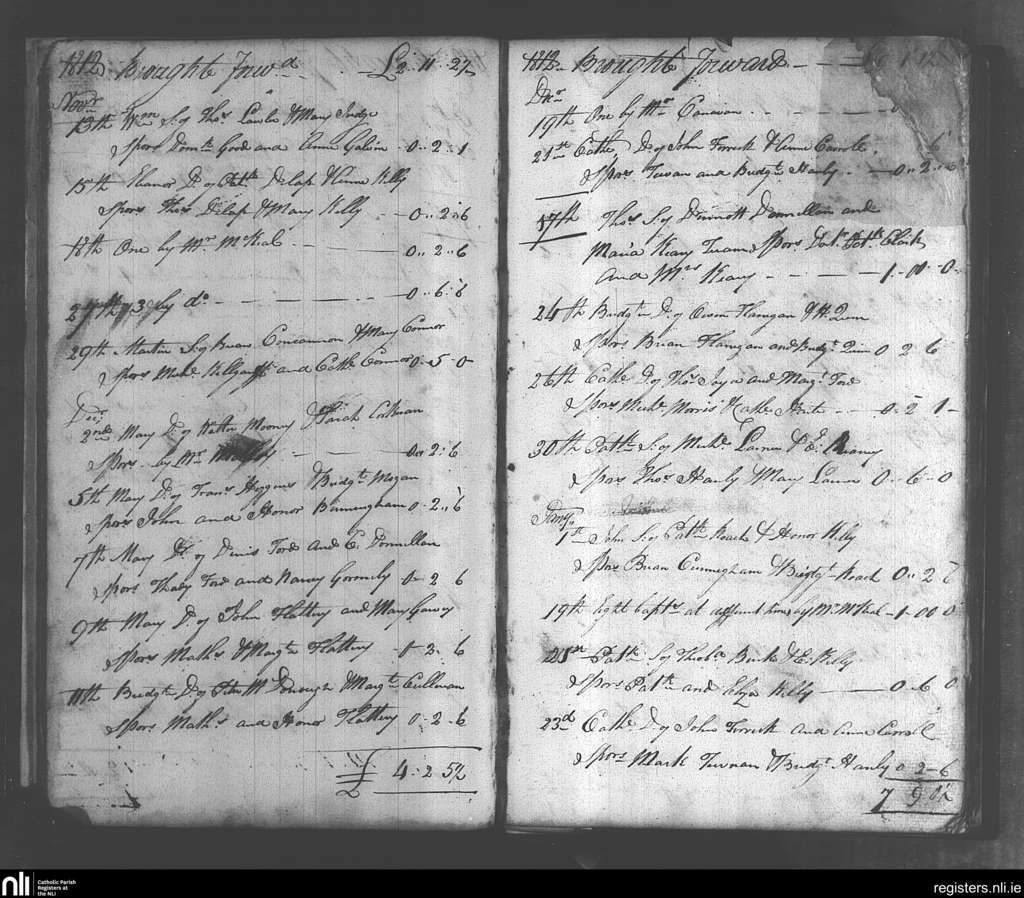 1812 Brought Forwd . . . £2 . 11 . 2½
Novr
13th Wm S. of Thos Lawler & Mary Judge
Spors Domk Good and Anne Galvin - 0 .. 2 . 1
15th Eleanor Dr of Patk Dilap & Anne Kelly
Spors Thos Dilap & Mary Kelly - 0 .. 2 .. 6
18th One by Mr McKeal - 0 .. 2 .. 6
27th 3 by do - 0 .. 6 .. 6
29th Martin S. of Brian Concannon & Mary Connor
Spors Michl and Cathe Connor 0 .. 5 .. 0
Decr
2nd Mary Dr of Mooney & Sarah
Spors by Mr - 0 .. 2 .. 6
5th Mary Dr of Frans Higgins & Bridgt Mogan
Spors John and Honor Birmingham 0 .. 2 .. 6
7th Mary Dr of Dinis Ford and C. Donnellan
Spors Thady Ford and Nancy Gormely 0 - 2 6
9th Mary Dr of John Flattery and Mary Garvey
Spors Maths & Margt Flattery - 2 . 6
11th Bridgt Dr of McDonough & Margt Cullinan
Spors Maths and Honor Flattery 0 .. 2 .. 6
£ 4 : 2 5½
1812 - Brought Forward
Decr
19th One by Mr Canavan
21st Cathe Dr of John Torrick & Anne Carroll
Spors and Bridgt Hanly - 0 .. 2 .. 6
17th Thos S. of Dermott Donnellan and
Maria Keary Tuam Spors Patk Clark
and Mrs Keary - 1 - 00 - 0
24th Bridgt Dr of Owen Flanigan & H. Quin
Spors Brian Flanigan and Bridgt Quin 0 2 6
26th Cathe Dr of Thos Joyce and Margt Ford
Spors Michl Morris & Cathe - 0 - 2 1 -
30th Patk S. of Michl Larner & E.
Spors Thos Hanly & Mary Larner 0 - 6 - 0
Jany
1st John S. of Patk Roach & Honor Kelly
Spors Brian Cunningham & Bridgt Roach 0 .. 2 6
19th Eight Bapts at different times by Mr McKeal - 1 - 00 0
21st Patk S. of Theobd Burk & E. Kelly
Spors Patk and Eliza Kelly - 0 - 6 0
23d Cathe Dr of John Torrick and Anne Carroll
Spors Mark & Bridgt Hanly 0 2 - 6
7 9 0½
nli
Catholic Parish
Registers at
the NLI
registers.nli.ie